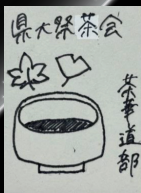 県大祭茶会
茶華道部